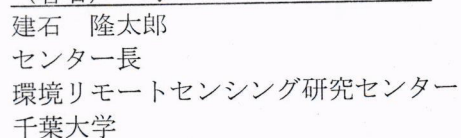 建石　隆太郎
センター長
環境リモートセンシング研究センター
千葉大学